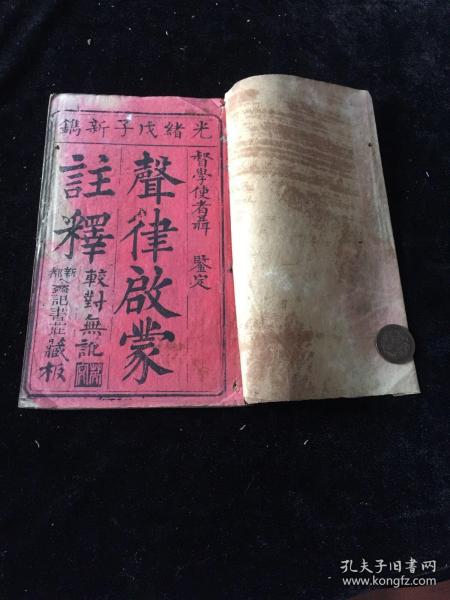 光緒戊子新鐫
督學使者聶 鑒定
聲律啟蒙
註釋
較對無訛
新都
記書莊藏板
孔夫子旧书网
www.kongfz.com